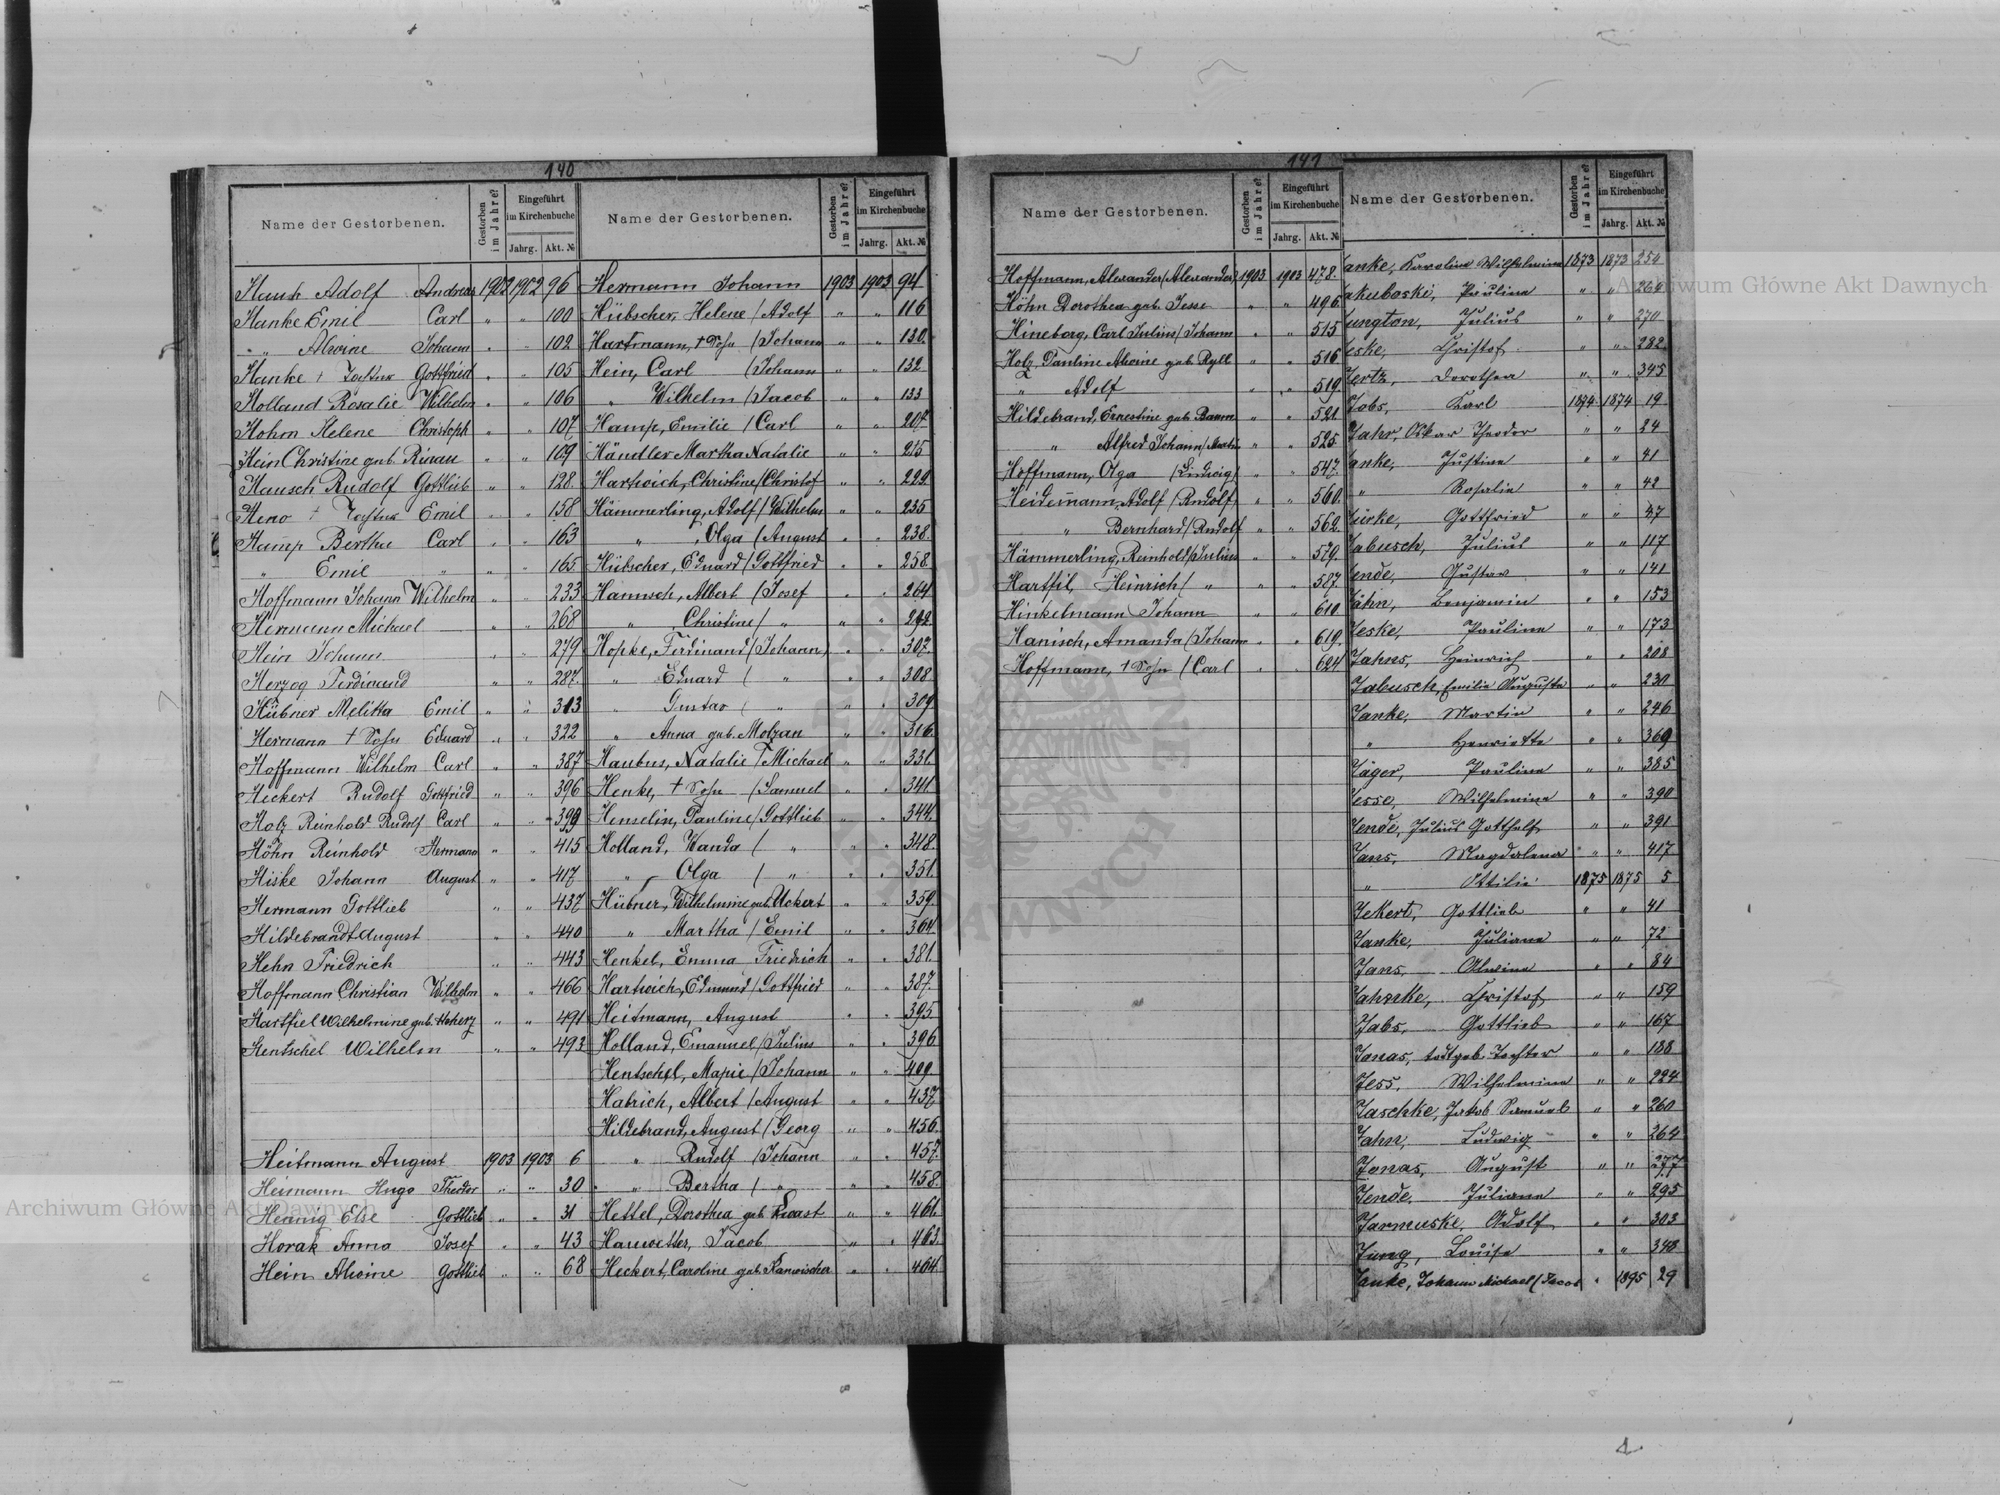 140
Name der Gestorbenen.
Gestorben im Jahre?
Eingeführt im Kirchenbuche
Jahrg. Akt. №
Adolf Andreas 1902 1902 96
Hanke Emil Carl " " 100
" Alwine Johann " " 102
Hanke † Tochter Gottfried " " 105
Holland Rosalie Wilhelm " " 106
Helene Christoph " " 107
Hein Christine geb. Rinau " " 109
Hausch Rudolf Gottlieb " " 128
† Tochter Emil " " 158
Hamp Bertha Carl " " 163
" Emil " " " 165
Hoffmann Johann Wilhelm " " 233
Hermann Michael " " 268
Hein Johann " " 279
Herzog Ferdinand " " 287
Hübner Melitta Emil " " 313
Hermann † Sohn Eduard " " 322
Hoffmann Wilhelm Carl " " 387
Heckert Rudolf Gottfried " " 396
Holz Reinhold Rudolf Carl " " 399
Höhn Reinhold Hermann " " 415
Hiske Johann August " " 417
Hermann Gottlieb " " 437
Hildebrandt August " " 440
Hehn Friedrich " " 443
Hoffmann Christian Wilhelm " " 466
Hartfiel Wilhelmine geb. " " 491
Hentschel Wilhelm " " 493
Heitmann August 1903 1903 6
Heimann Hugo Theodor " " 30
Hennig Else Gottlieb " " 31
Horak Anna Josef " " 43
Hein Alwine Gottlieb " " 68
Name der Gestorbenen.
Gestorben im Jahre?
Eingeführt im Kirchenbuche
Jahrg. Akt. №
Hermann Johann 1903 1903 94
Hübscher, Helene / Adolf " " 116
Hartmann, † Sohn / Johann " " 130
Hein, Carl / Johann " " 132
" Wilhelm / Jacob " " 133
Hamp, Emilie / Carl " " 207
Händler Martha Natalie " " 215
Hartwich, Christine / Christof " " 229
Hämmerling, Adolf / Wilhelm " " 235
" , Olga / August " " 238
Hübscher, Eduard / Gottfried " " 258
Hannsch, Albert / Josef " " 264
" Christine / " " "
Hopke, Ferdinand / Johann " " 307
" Eduard / " " " 308
" Gustav / " " " 309
" Anna geb. Molzan " " 316
Haubus, Natalie / Michael " " 331
Henke, † Sohn / Samuel " " 341
Henselin, Pauline / Gottlieb " " 344
Holland, Wanda / " " " 348
" Olga / " " " 351
Hübner, Wilhelmine geb. Uckert " " 359
" Martha / Emil " " 364
Henkel, Emma Friedrich " " 381
Hartwich, Edmund / Gottfried " " 387
Heitmann, August " " 395
Holland, Emanuel / Julius " " 396
Hentschel, Marie / Johann " " 409
Habrich, Albert / August " " 437
Hildebrand, August / Georg " " 456
" Rudolf / Johann " " 457
" Bertha / " " " 458
Hettel, Dorothea geb. " " 461
Jacob " " 463
Heckert, Caroline geb. " " 464
141
Name der Gestorbenen.
Gestorben im Jahre?
Eingeführt im Kirchenbuche
Jahrg. Akt. №
Hoffmann, Alexander / Alexander 1903 1903 478
Höhn Dorothea geb. Jesse " " 496
Hineborg, Carl Julius / Johann " " 515
Holz, Pauline Alwine geb. Ryll " " 516
" Adolf " " 519
Hildebrand, Ernestine geb. Baum " " 521
" Alfred Johann / Martin " " 525
Hoffmann, Olga / Ludwig " " 547
Heidemann, Adolf / Rudolf " " 560
" Bernhard / Rudolf " " 562
Hämmerling, Reinhold / Julius " " 579
Hartfil, Heinrich / " " " 587
Hinkelmann Johann " " 610
Hanisch, Amanda / Johann " " 619
Hoffmann, † Sohn / Carl " " 624
Name der Gestorbenen.
Gestorben im Jahre?
Eingeführt im Kirchenbuche
Jahrg. Akt. №
Janke, Karoline Wilhelmine 1873 1873 254
Jakubaski, Pauline " " 264
Jungton, Julius " " 270
Jeske, Christof " " 282
Jertz, Dorothea " " 345
Jobs, Karl 1874 1874 19
Jahr, Oskar Theodor " " 24
Janke, Justine " " 41
" Rosalie " " 42
Gottfried " " 47
Jabusch, Julius " " 117
Jende, Gustav " " 141
Jähn, Benjamin " " 153
Jeske, Pauline " " 173
Jahns, Heinrich " " 208
Jabusch, Emilie Auguste " " 230
Janke, Martin " " 246
" Henriette " " 369
Jäger, Pauline " " 385
Jesse, Wilhelmine " " 390
Jende, Julius Gotthelf " " 391
Jans, Magdalena " " 417
" Ottilie 1875 1875 5
Jekert, Gottlieb " " 41
Janke, Juliane " " 72
Jans, Alwine " " 84
Jahnke, Christof " " 159
Jabs, Gottlieb " " 167
Jonas, todtgeb. Tochter " " 188
Jess, Wilhelmine " " 224
Jaschke, Jakob Samuel " " 260
Jahn, Ludwig " " 264
Jonas, August " " 277
Jende, Juliane " " 295
Jarmuske, Adolf " " 303
Jung, Louise " " 348
Janke, Johann Michael / Jacob " 1895 29
Archiwum Główne Akt Dawnych
Archiwum Główne Akt Dawnych